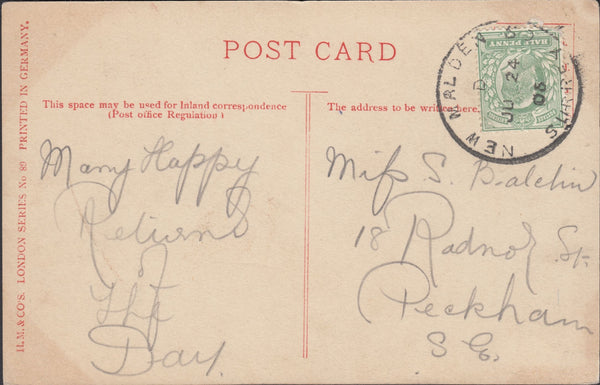 POST CARD
HALF PENNY
NEW MALDEN S.O.
SURREY
D
JU 24
06
This space may be used for Inland correspondence
(Post office Regulation)
The address to be written here.
Many Happy
Returns
of
The
Day.
Miss S. Balchin
18 Radnor St.
Peckham
S E.
H.M. & CO'S. LONDON SERIES No 89 PRINTED IN GERMANY.